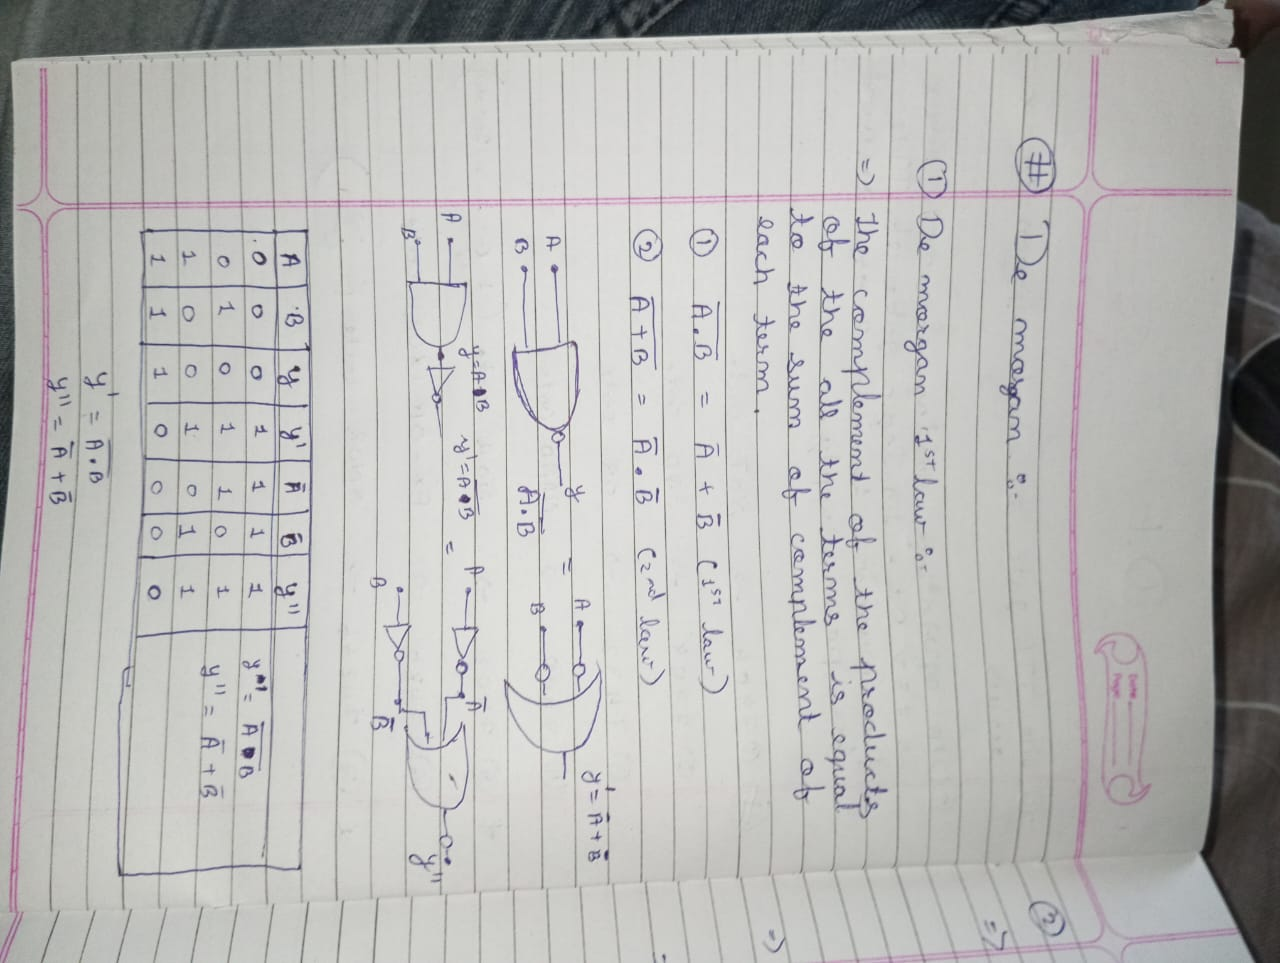 Date
Page
# De morgan :-
① De morgan 1st law :-
=> The complement of the products
of the all the terms is equal
to the sum of complement of
each term.
① A̅.̅B̅ = A̅ + B̅ (1st law)
② A̅+̅B̅ = A̅ . B̅ (2nd law)
A
B
y
A̅.̅B̅
=
A
B
y' = A̅ + B̅
A
B
y = A.B
y' = A̅.̅B̅
=
A
B
A̅
B̅
y''
A B y y' A̅ B̅ y''
0 0 0 1 1 1 1
0 1 0 1 1 0 1
1 0 0 1 0 1 1
1 1 1 0 0 0 0
= A̅.̅B̅
y'' = B A̅ + B̅
y' = A̅.̅B̅
y'' = A̅ + B̅
②
=>
=>